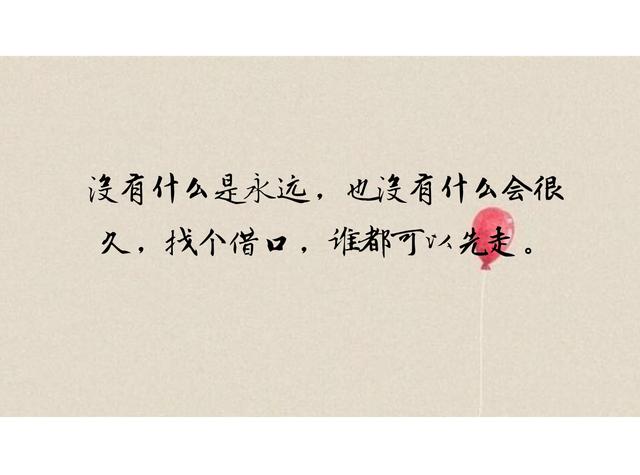 没有什么是永远，也没有什么会很
久，找个借口，谁都可以先走。